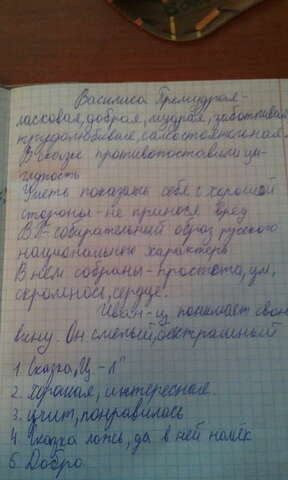 Василиса Премудрая-
ласковая, добрая, мудрая, заботливая
трудолюбивые, самостоятельная.
В сказке противопоставили ум-
глупость
Уметь показать себя с хорошей
стороны - не принося вред
В.П - собирательный образ русского
национального характера
В нём собраны - простота, ум,
скромность, сердце.
Иван - ц. понимает свою
вину. Он смелый, бесстрашный
1. Сказка „Ц. - Л"
2. Хорошая, интересная.
3. учит, понравилась
4. Сказка ложь, да в ней намёк
5. Добро